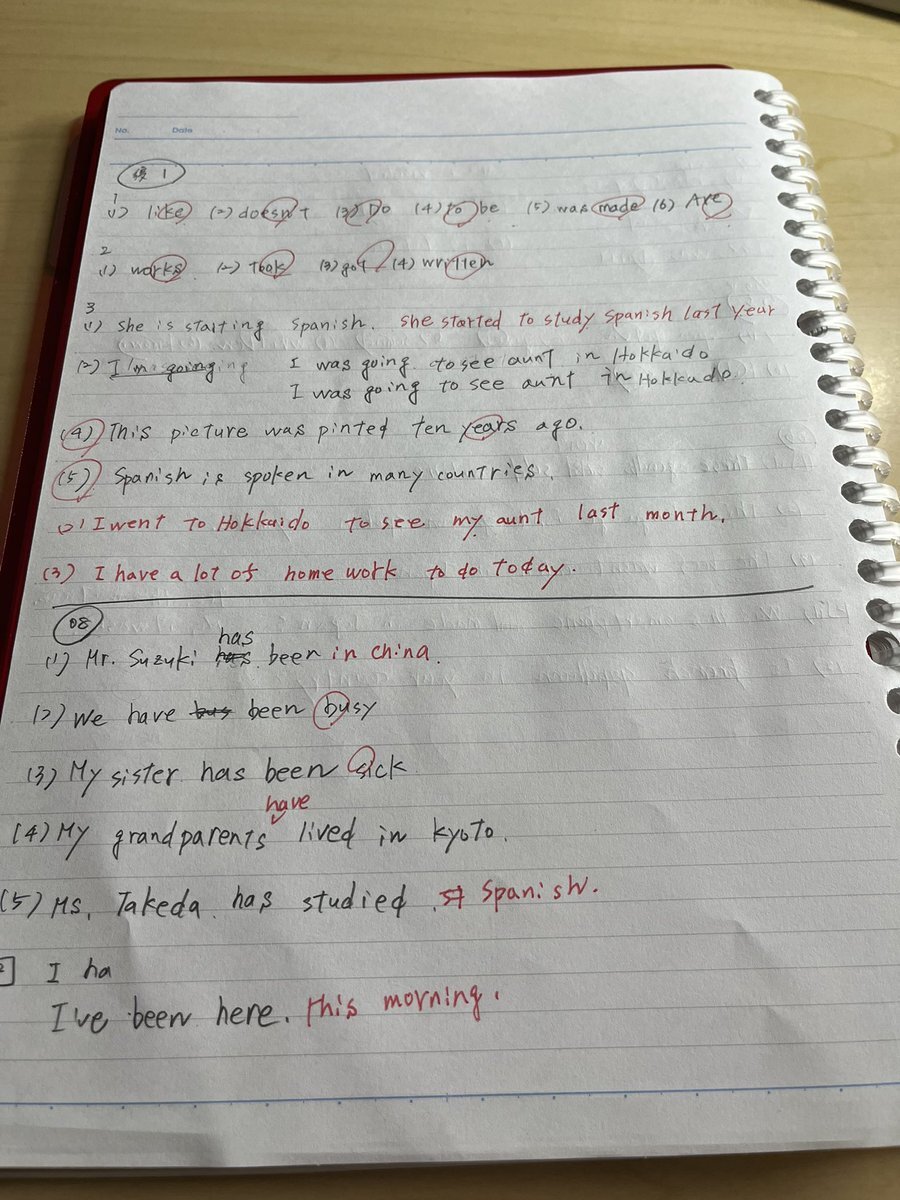 No. Date
復 1
1
(1) like (2) doesn't (3) Do (4) to be (5) was made (6) Are
2
(1) works (2) took (3) got (4) written
3
(1) She is starting Spanish. She started to study Spanish last year
(2) I'm going I was going to see aunt in Hokkaido
I was going to see aunt in Hokkaido.
(4) This picture was pinted ten years ago.
(5) Spanish is spoken in many countries.
(2) I went to Hokkaido to see my aunt last month.
(3) I have a lot of home work to do today.
08
has
(1) Mr. Suzuki has been in china.
(2) We have bus been busy
(3) My sister has been sick
have
(4) My grandparents lived in kyoto.
(5) Ms. Takeda has studied st Spanish.
2 I ha
I've been here. this morning.